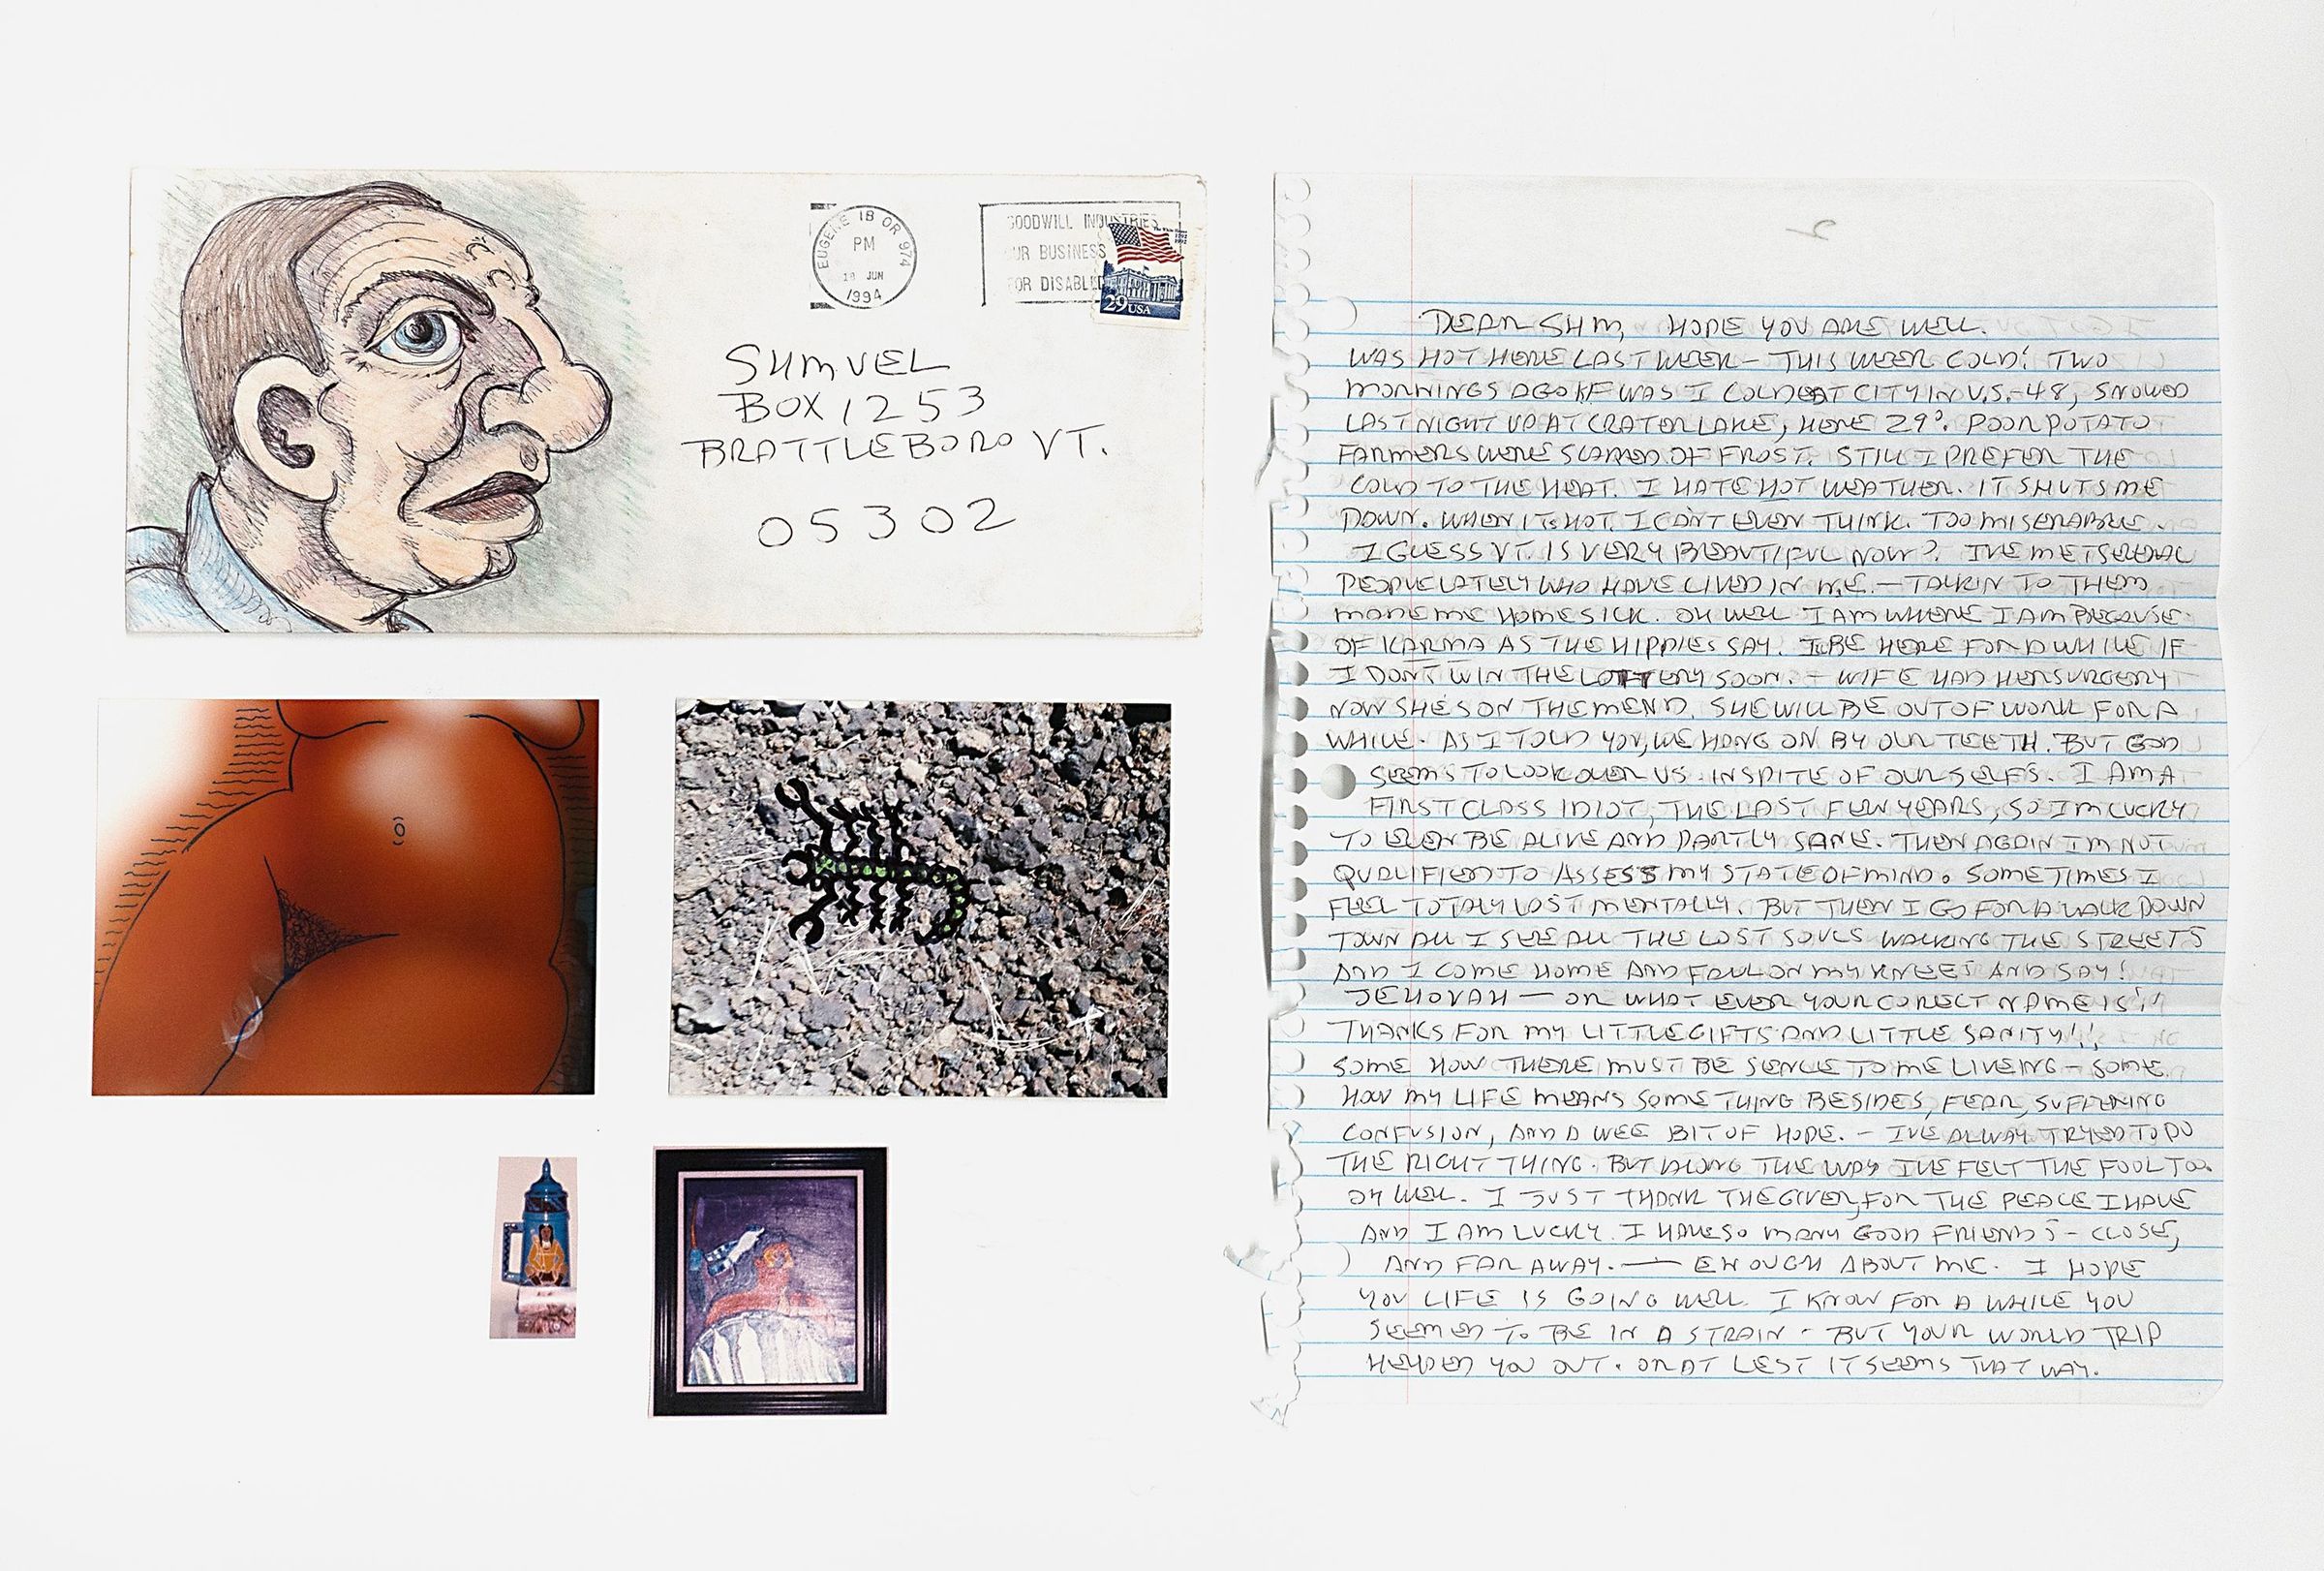 EUGENE 1B OR 974
PM
JUN
1994
GOODWILL INDUSTRIES
OUR BUSINESS
FOR DISABLED
29 USA
SAMUEL
BOX 1253
BRATTLEBORO VT.
05302
2
DEAR SAM, HOPE YOU ARE WELL.
WAS HOT HERE LAST WEEK – THIS WEEK COLD! TWO
MORNINGS AGO KF WAS 1 COLDEST CITY IN U.S.-48, SNOWED
LAST NIGHT UP AT CRATER LAKE, HERE 29°. POOR POTATO
FARMERS WERE SCARED OF FROST. STILL I PREFER THE
COLD TO THE HEAT. I HATE HOT WEATHER. IT SHUTS ME
DOWN. WHEN IT'S HOT I CAN'T EVEN THINK. TOO MISERABLE.
I GUESS VT. IS VERY BEAUTIFUL NOW? I'VE MET SEVERAL
PEOPLE LATELY WHO HAVE LIVED IN N.E. – TALKIN TO THEM
MADE ME HOMESICK. OH WELL I AM WHERE I AM BECAUSE
OF KARMA AS THE HIPPIES SAY. I'LL BE HERE FOR A WHILE IF
I DON'T WIN THE LOTTERY SOON. – WIFE HAD HER SURGERY
NOW SHE'S ON THE MEND. SHE WILL BE OUT OF WORK FOR A
WHILE. AS I TOLD YOU, WE HANG ON BY OUR TEETH. BUT GOD
SEEMS TO LOOK OVER US. INSPITE OF OUR SELF'S. I AM A
FIRST CLASS IDIOT, THE LAST FEW YEARS, SO I'M LUCKY
TO EVEN BE ALIVE AND PARTLY SANE. THEN AGAIN I'M NOT
QUALIFIED TO ASSESS MY STATE OF MIND. SOMETIMES I
FEEL TOTALY LOST MENTALLY. BUT THEN I GO FOR A WALK DOWN
TOWN ALL I SEE ALL THE LOST SOULS WALKING THE STREETS
AND I COME HOME AND FALL ON MY KNEES AND SAY!
JEHOVAH – OR WHAT EVER YOUR CORECT NAME IS!!
THANKS FOR MY LITTLE GIFTS AND LITTLE SANITY!!,
SOME HOW THERE MUST BE SENCE TO ME LIVEING – SOME
HOW MY LIFE MEANS SOMETHING BESIDES, FEAR, SUFFERING
CONFUSION, AND A WEE BIT OF HOPE. – I'VE ALWAY TRYED TO DO
THE RIGHT THING. BUT ALONG THE WAY I'VE FELT THE FOOL TOO.
OH WELL. I JUST THANK THE GIVER, FOR THE PEACE I HAVE
AND I AM LUCKY. I HAVE SO MANY GOOD FRIENDS – CLOSE,
AND FAR AWAY. — ENOUGH ABOUT ME. I HOPE
YOU LIFE IS GOING WELL. I KNOW FOR A WHILE YOU
SEEMED TO BE IN A STRAIN – BUT YOUR WORLD TRIP
HELPED YOU OUT. OR AT LEST IT SEEMS THAT WAY.